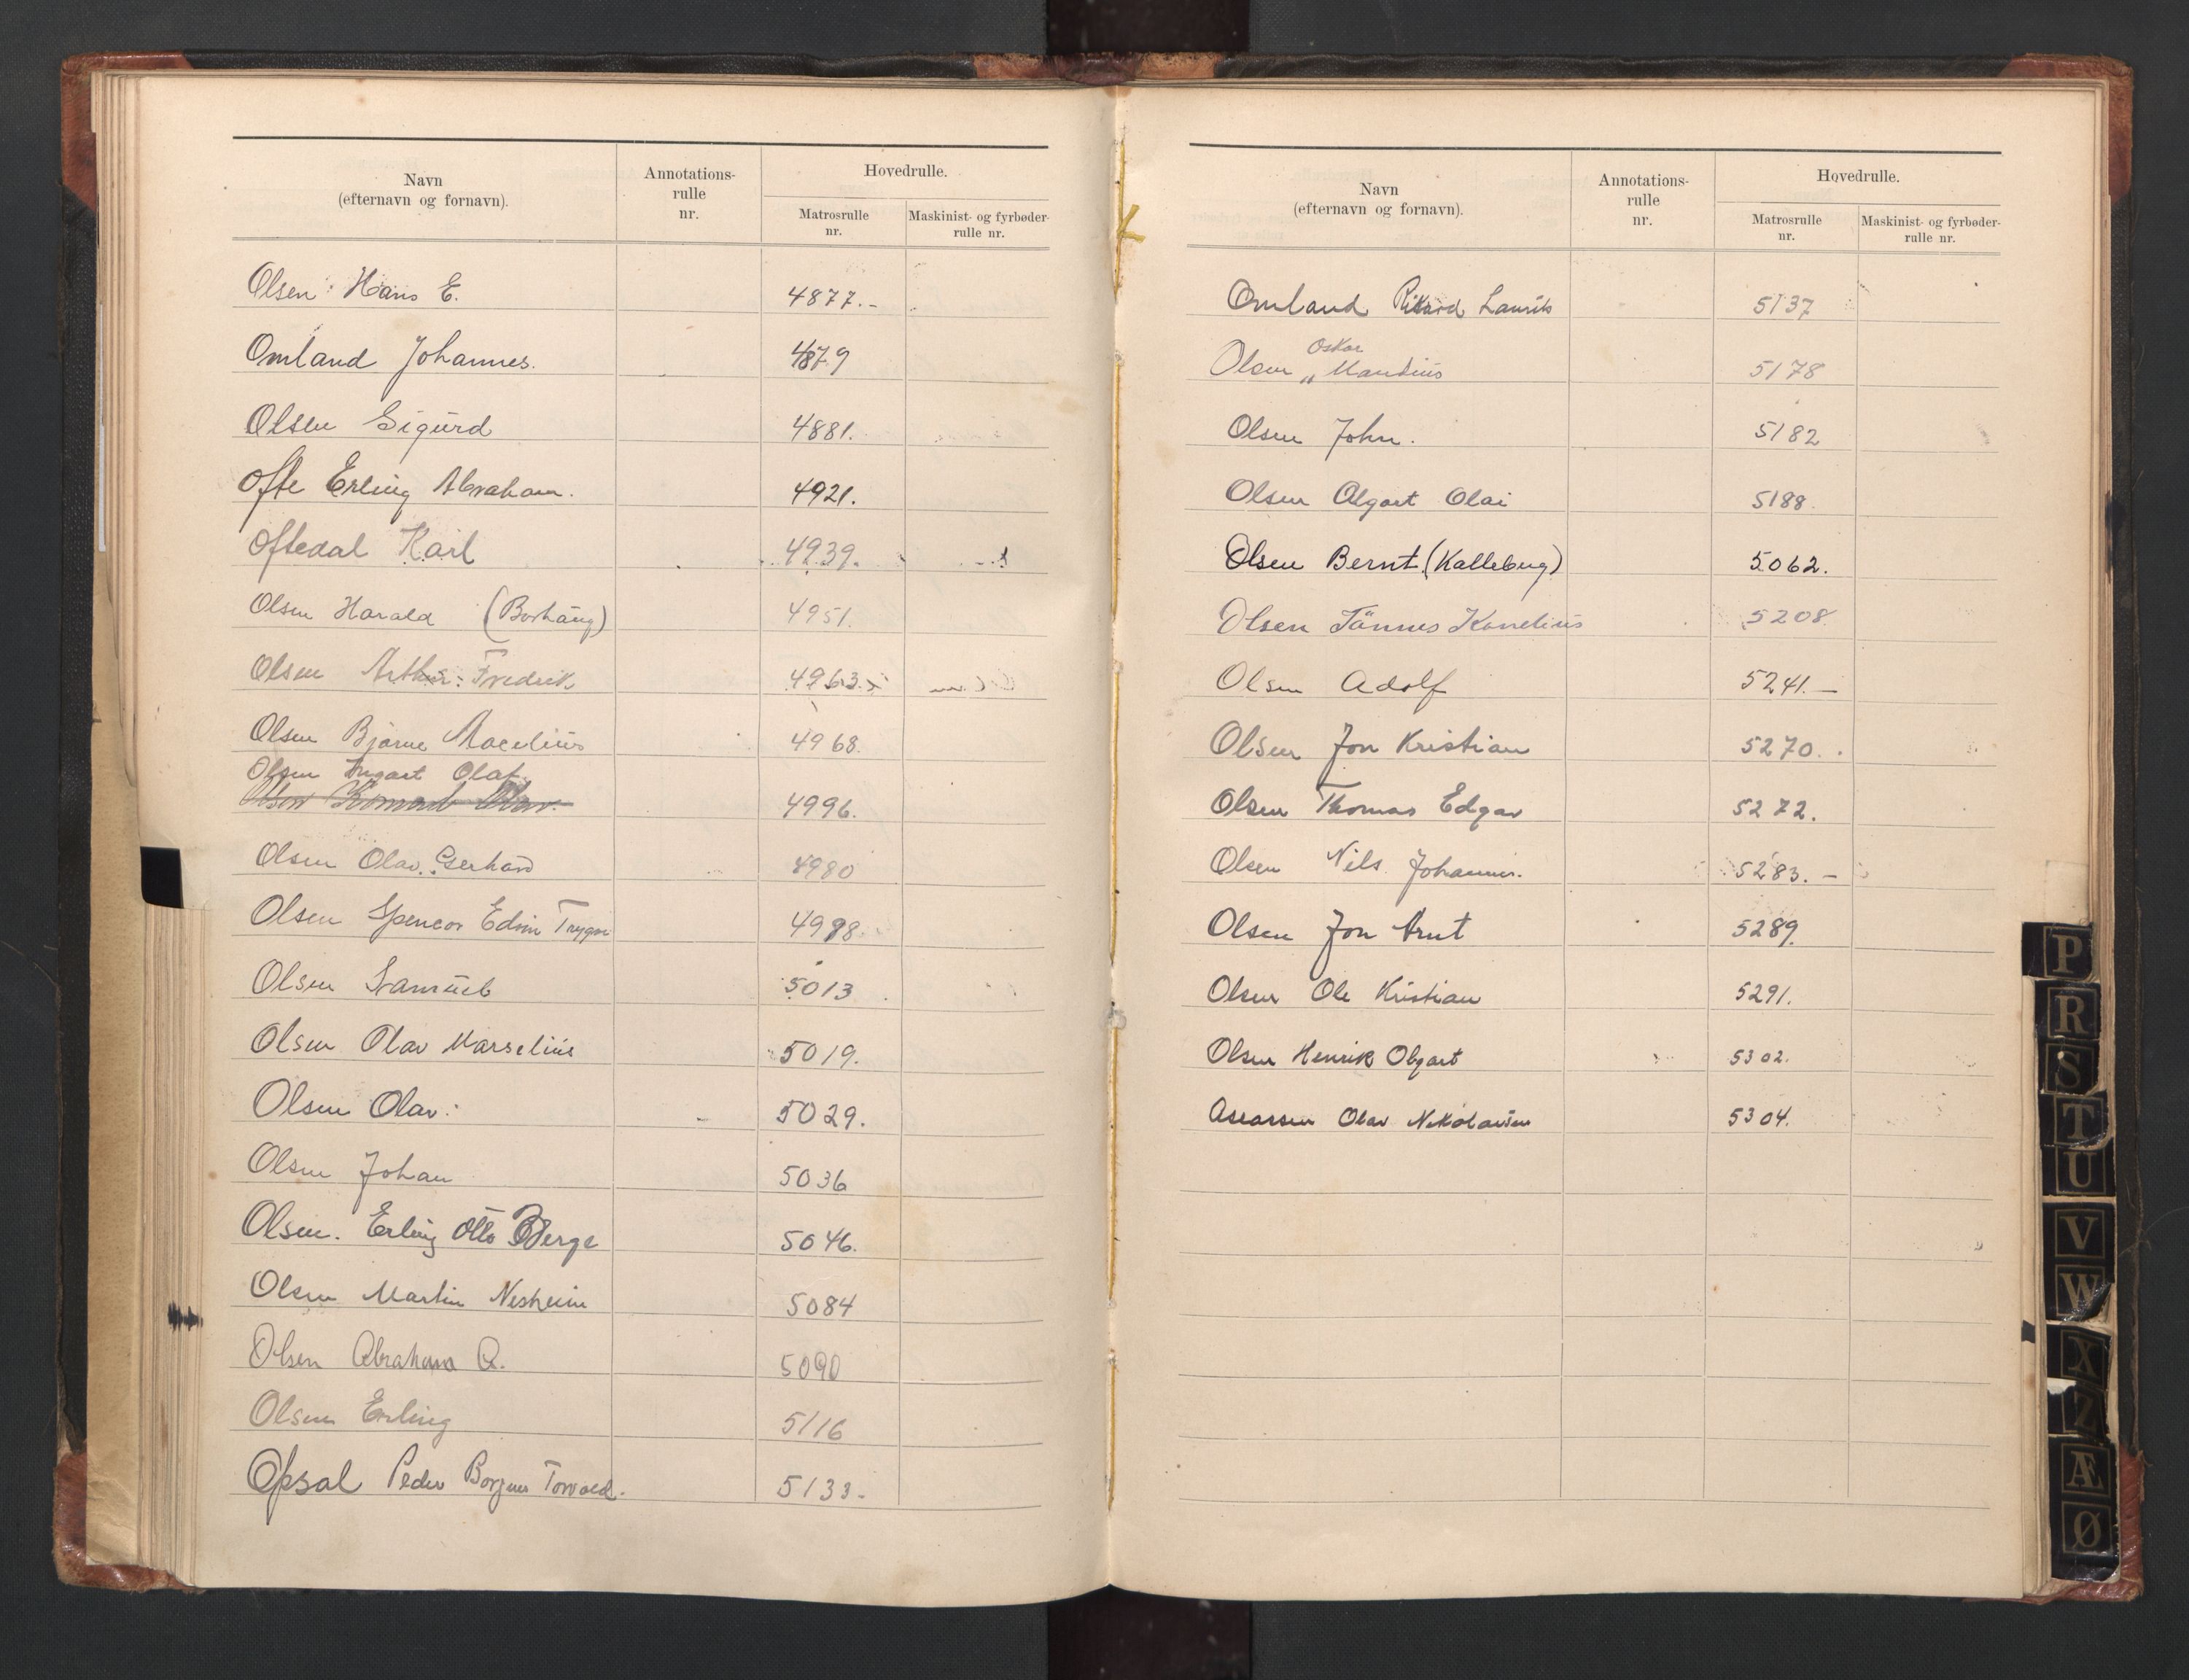 Navn
(efternavn og fornavn).
Annotations-
rulle
nr.
Hovedrulle.
Matrosrulle
nr.
Maskinist- og fyrbøder-
rulle nr.
Olsen Hans E. 4877.-
Omland Johannes. 4879
Olsen Sigurd 4881.
Ofte Erling Abraham. 4921.
Oftedal Karl 4939.
Olsen Harald (Borhaug) 4951.
Olsen Arthur Fredrik 4963.
Olsen Bjarne 4968.
Olsen Ingart Olaf
Olsen 4996.
Olsen Olav Gerhard 4980
Olsen Spencer Edvin Trygve 4998.
Olsen Samuel 5013
Olsen Olav Marselius 5019.
Olsen Olav. 5029.
Olsen Johan 5036
Olsen. Erling Otto Berge 5046.
Olsen Martin Nesheim 5084
Olsen Abraham A. 5090
Olsen Erling 5116
Opsal Peder Torvald. 5133-
Navn
(efternavn og fornavn).
Annotations-
rulle
nr.
Hovedrulle.
Matrosrulle
nr.
Maskinist- og fyrbøder-
rulle nr.
Omland Rikard Laurits 5137
Oskar
Olsen „ Mandius 5178
Olsen John. 5182
Olsen Algart Olai 5188.
Olsen Bernt (Kalleberg) 5062.
Olsen Tönnes Kornelius 5208
Olsen Adolf 5241.-
Olsen Jon Kristian 5270.
Olsen Thomas Edgar 5272.
Olsen Nils Johannes. 5283.-
Olsen Jon Arnt 5289.
Olsen Ole Kristian 5291.
Olsen Henrik Olgart 5302.
Olav Nikolaisen 5304.
P
R
S
T
U
V
W
X
Z
Æ
Ø